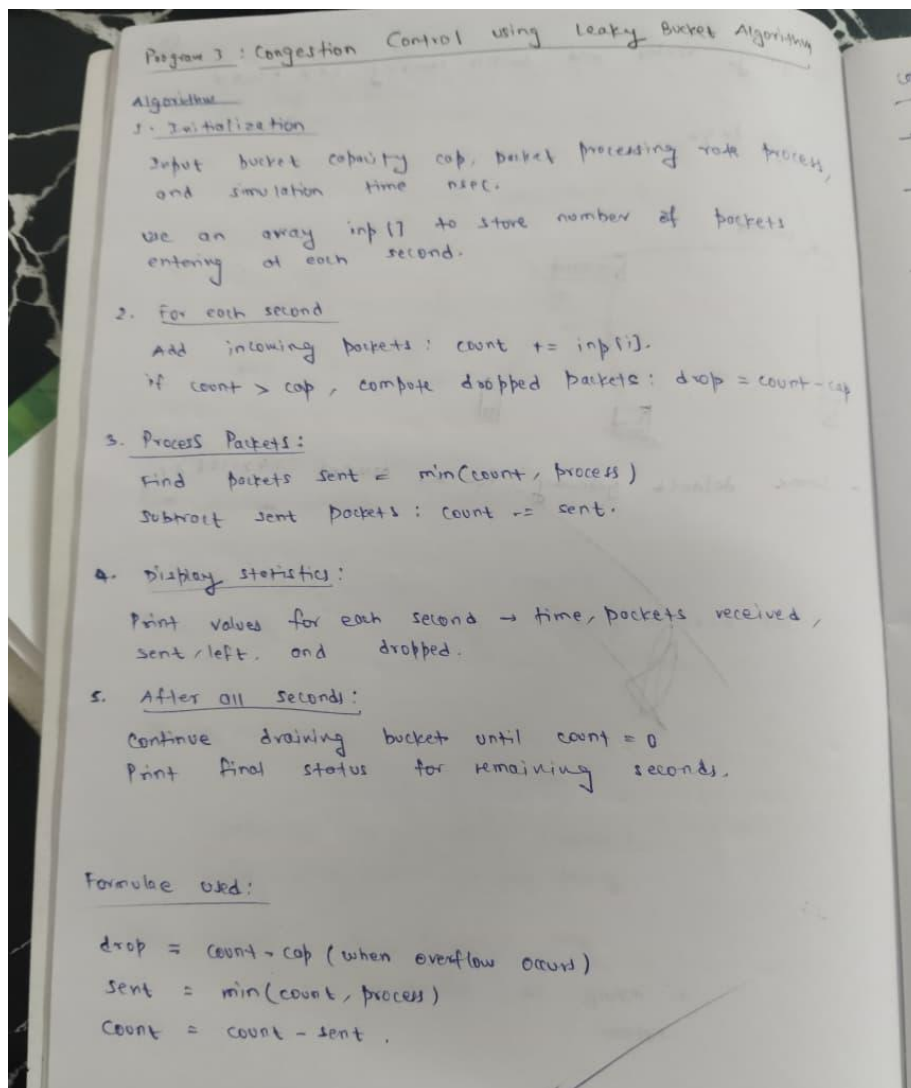 Program 3 : Congestion Control using Leaky Bucket Algorithm
Algorithm
1. Initialization
Input bucket capacity cap, packet processing rate process,
and simulation time nsec.
Use an array inp [] to store number of packets
entering at each second.
2. For each second
Add incoming packets : count += inp[i].
if count > cap , compute dropped packets : drop = count-cap
3. Process Packets :
Find packets sent = min(count, process)
Subtract sent packets : count -= sent.
4. Display statistics :
Print values for each second → time, packets received,
sent, left, and dropped.
5. After all seconds :
Continue draining bucket until count = 0
Print final status for remaining seconds.
Formulae used :
drop = count - cap (when overflow occurs)
sent = min(count, process)
Count = count - sent .